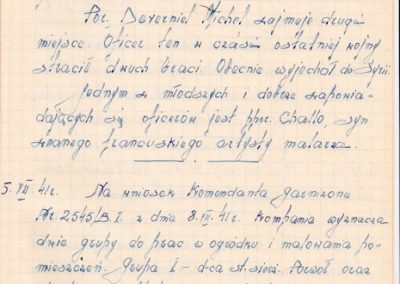 Por. Deverniel Michel zajmuje drugie
miejsce. Oficer ten w czasie ostatniej wojny
stracił dwuch braci. Obecnie wyjechał do Syrii.
Jednym z młodszych i dobrze zapowia-
dających się oficerów jest ppor. Challo, syn
znanego francuskiego artysty malarza.
5. VII. 41r. Na wniosek Komendanta garnizonu
Nr. 2545/B.I. z dnia 8. VII. 41r. Kompania wyznacza
dwie grupy do prac w ogródku i malowania po-
mieszczeń. Grupa I - d-ca st. sierż. oraz